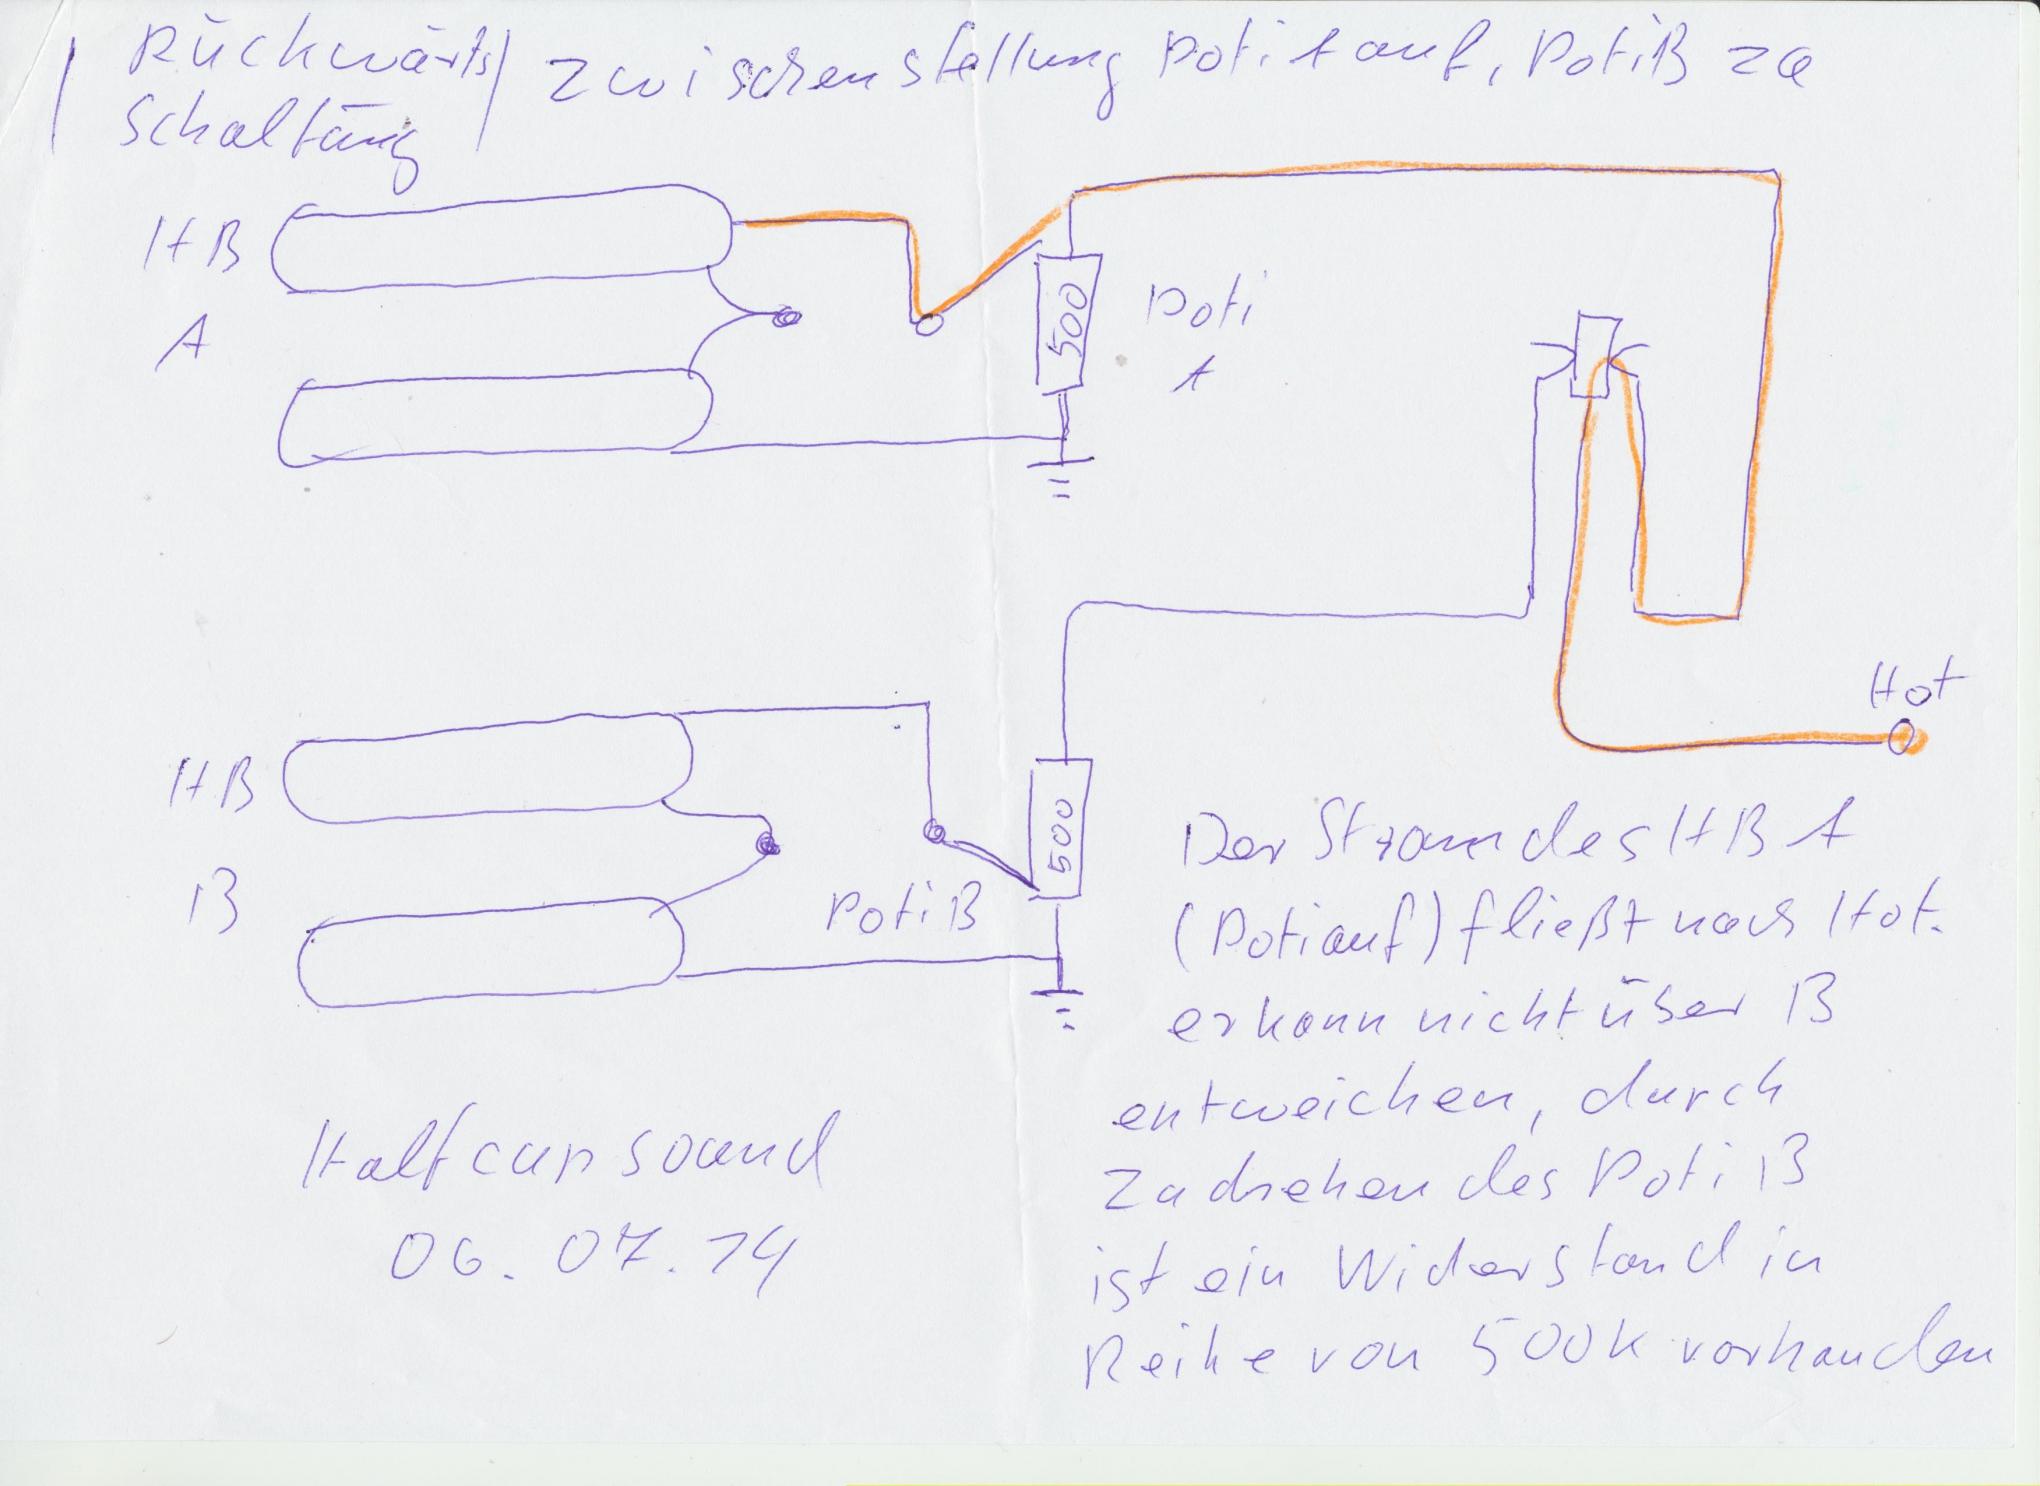 Rückwärts
Schaltung
Zwischenstellung Poti A auf, Poti B zu
HB
A
500
Poti
A
Hot
HB
B
500
Poti B
Der Strom des HB A
(Poti auf) fließt nach Hot.
er kann nicht über B
entweichen, durch
Zudrehen des Poti B
ist ein Widerstand in
Reihe von 500k vorhanden
Halfcupsound
06.07.14